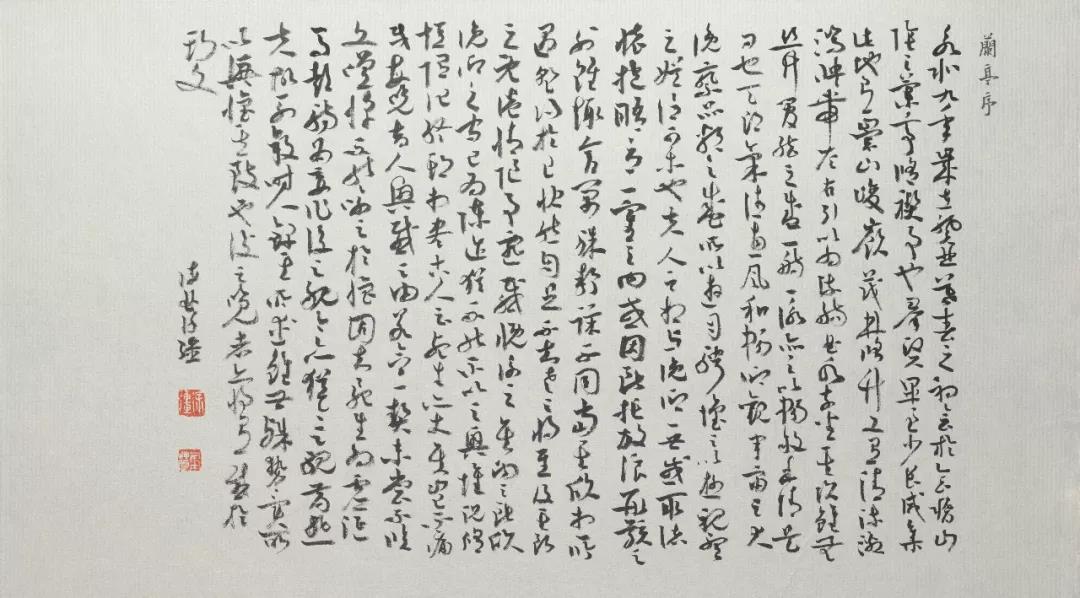 蘭亭序
永和九年歲在癸丑暮春之初會於會稽山
陰之蘭亭脩禊事也羣賢畢至少長咸集
此地有崇山峻嶺茂林脩竹又有清流激
湍映帶左右引以為流觴曲水列坐其次雖無
絲竹管絃之盛一觴一詠亦足以暢敘幽情是
日也天朗氣清惠風和暢仰觀宇宙之大
俯察品類之盛所以遊目騁懷足以極視聽
之娛信可樂也夫人之相與俯仰一世或取諸
懷抱晤言一室之內或因寄所託放浪形骸之
外雖趣舍萬殊靜躁不同當其欣於所
遇暫得於己快然自足不知老之將至及其所
之既倦情隨事遷感慨係之矣向之所欣
俯仰之間已為陳迹猶不能不以之興懷況脩
短隨化終期於盡古人云死生亦大矣豈不痛
哉每覽昔人興感之由若合一契未嘗不臨
文嗟悼不能喻之於懷固知死生為虛誕
齊彭殤為妄作後之視今亦猶今之視昔悲
夫故列敘時人錄其所述雖世殊事異所
以興懷其致一也後之覽者亦將有感於
斯文